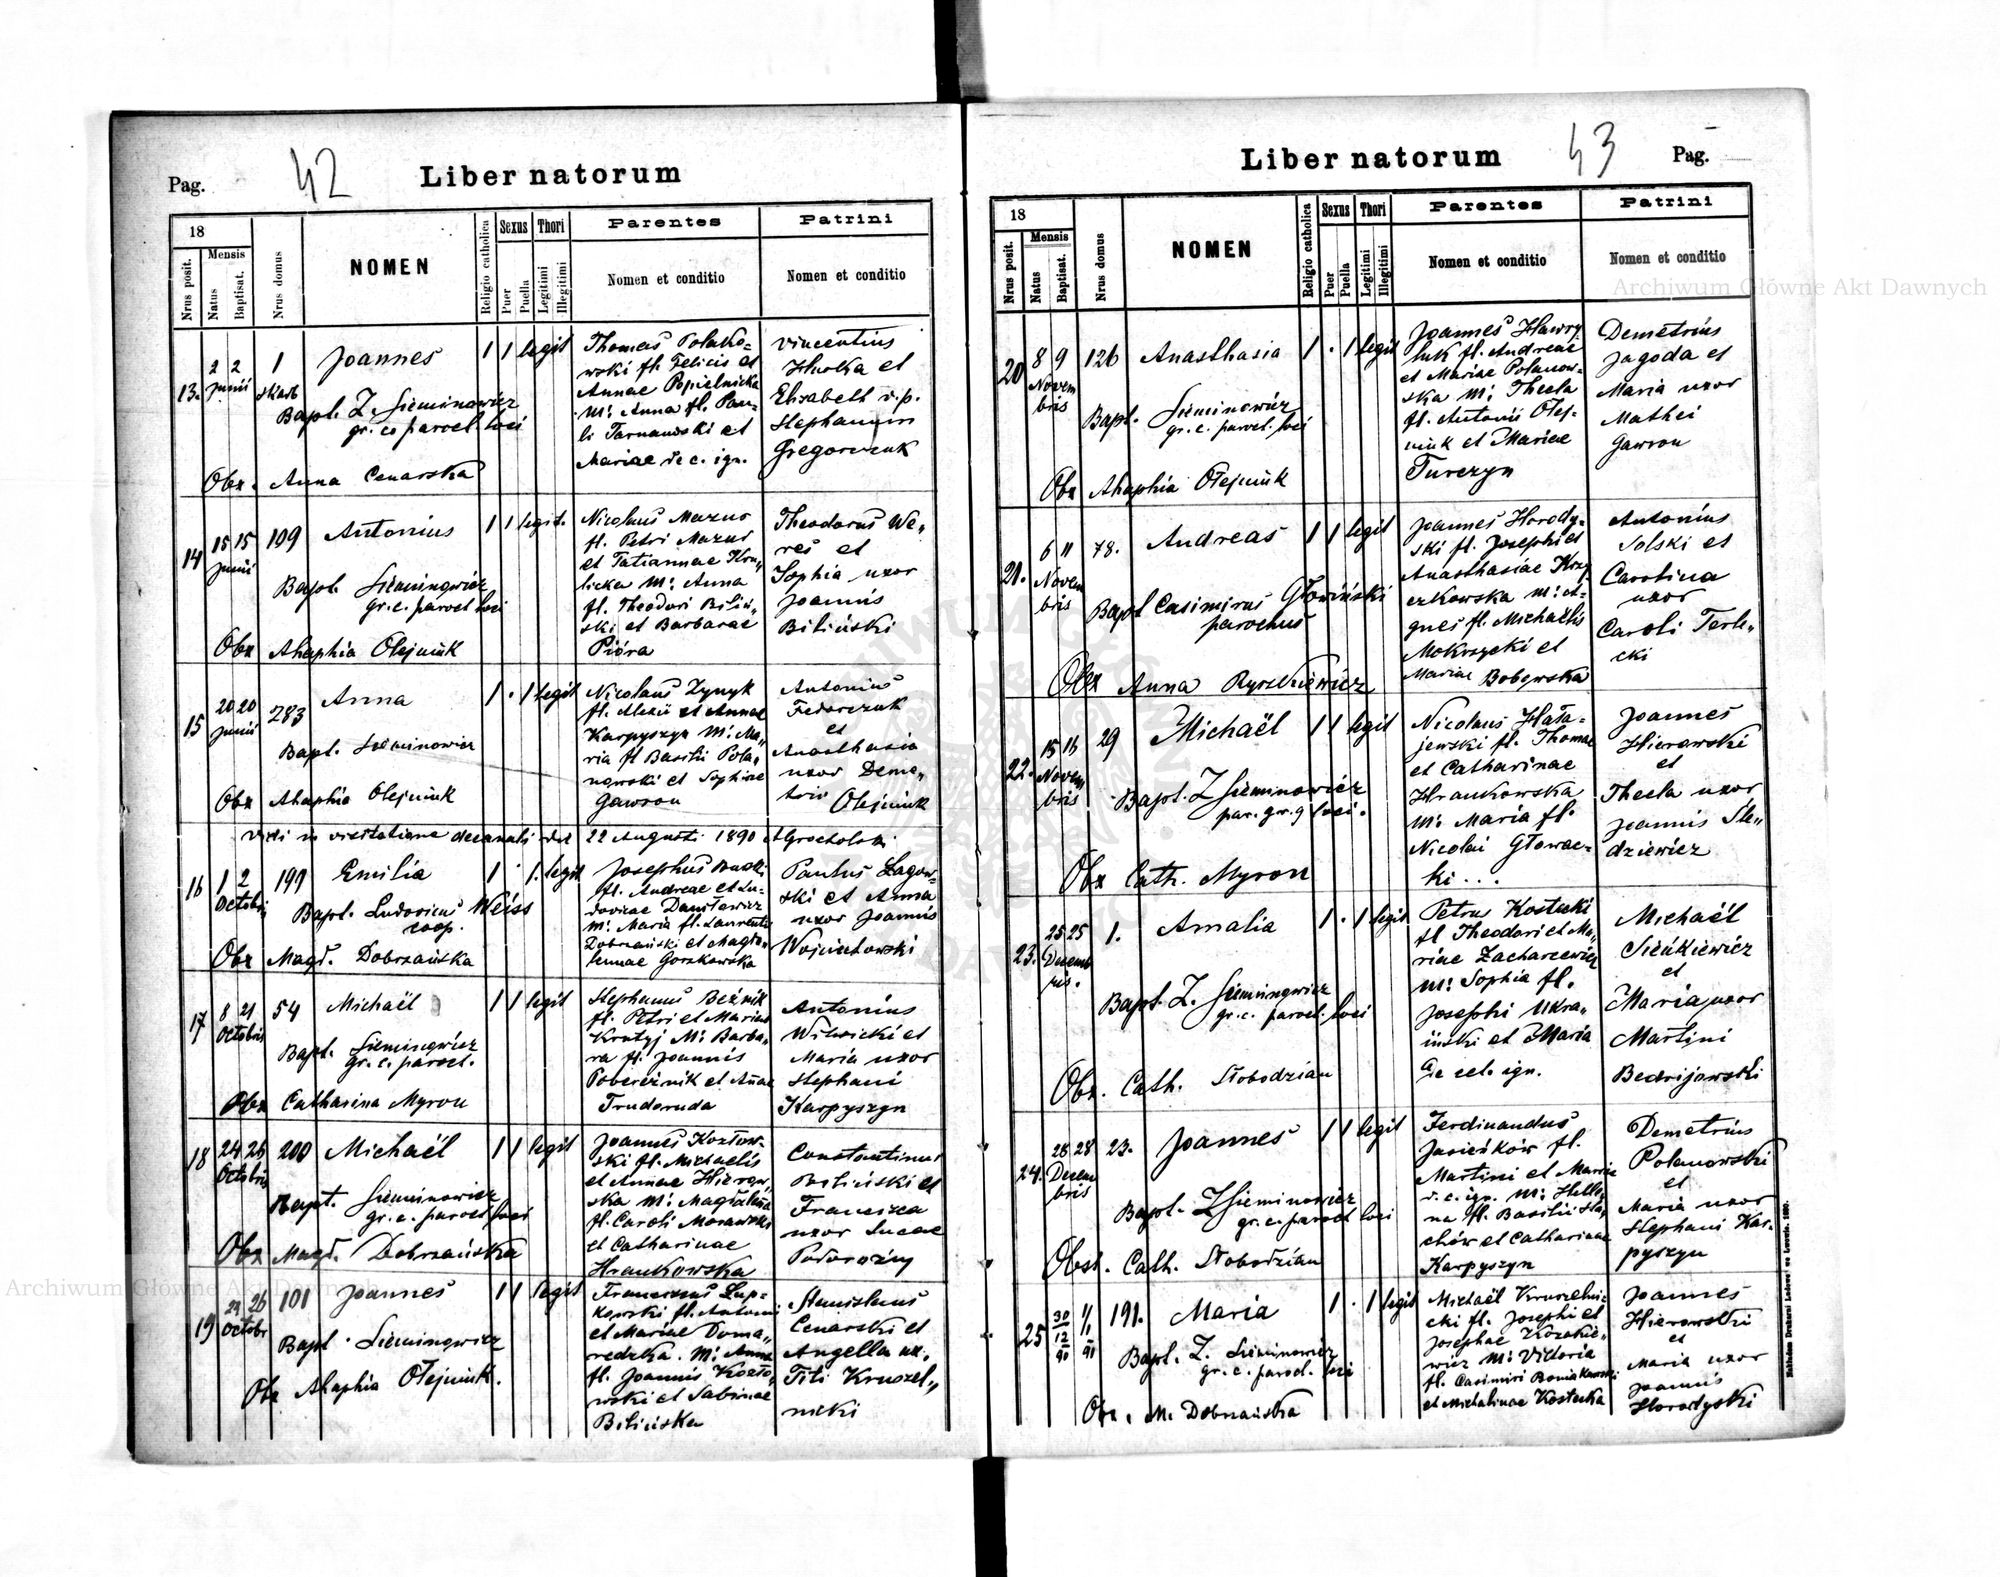 42
Liber natorum
Pag.
18
Nrus posit.
Mensis
Natus
Baptisat.
Nrus domus
NOMEN
Religio catholica
Sexus
Puer
Puella
Thori
Legitimi
Illegitimi
Parentes
Nomen et conditio
Patrini
Nomen et conditio
13. 2 2 Junii 1
Joannes
1 1 legit
Bapt. Z. Sieminowicz
gr. c. paroch. loci
Obx. Anna Cenarska
Thomas Polako-
wski fl. Felicis et
Annae Popielnicka
M: Anna fl. Pau-
li Tarnawski et
Mariae de c. ign.
Vincentius
et
Elisabeth v. p.
Stephanum
Gregorczuk
14 15 15 Junii 199
Antonius
1 1 legit.
Bapt. Sieminowicz
gr. c. paroch loci
Obx Ahaphia Olejnik
Nicolaus Mazur
fl. Petri Mazur
et Tatiannae Kru„
licka M: Anna
fl. Theodori Biliń„
ski et Barbarae
Pióra
Theodorus We„
res et
Sophia uxor
Joannis
Biliński
15 20 20 Junii 283
Anna
1 . 1 legit
Bapt. Sieminowicz
Obx Ahaphia Olejnik
Nicolaus Zynyk
fl. Alexii et Annae
Karpyszyn M: Ma„
ria fl Basilii Pola„
nowski et Sophiae
Gawron
Antonius
Fedorczuk
et
Anasthasia
uxor Deme„
trii Olejniuk
vidi in visitatione decanali die 22 Augusti 1890 AGrocholski
16 1 2 Octobris 199
Emilia
1 . 1. legit
Bapt. Ludovicus Weiss
coop.
Obx Magd. Dobrzańska
Josephus
fl. Andreae et Lu-
dovicae Daniłewicz
M: Maria fl. Laurentii
Dobrzański et Magda-
lennae Gorzkowska
Paulus Lagow-
ski et Anna
uxor Joannis
Wojciechowski
17 8 21 Octobris 54
Michaël
1 1 legit
Bapt. Sieminowicz
gr. c. paroch.
Obx Catharina Myron
Stephanus Beźnik
fl. Petri et Mariae
Krutyj M: Barba„
ra fl. Joannis
Pobereźnik et Annae
Trudoruda
Antonius
Witwicki et
Maria uxor
Stephani
Karpyszyn
18 24 26 Octobris 200
Michaël
1 1 legit
Bapt. Sieminowicz
gr. c. paroch loci
Obx Magd. Dobrzańska
Joannes Kozłow-
ski fl. Michaelis
et Annae Hierow„
ska M: Magdalena
fl. Caroli Morawski
et Catharinae
Hrankowska
Constantinus
Biliński et
Francisca
uxor Lucae
Podorozny
19 24 26 Octobr 101
Joannes
1 1 legit
Bapt. Sieminowicz
Obx Ahaphia Olejniuk.
Franciscus Lup-
kowski fl. Antonii
et Mariae Doma„
redzka. M: Anna
fl. Joannis Kozło„
wski et Sabinae
Bilińska
Stanislaus
Cenarski et
Angella ux.
Titi Kruszel„
nicki
Liber natorum
43
Pag.
18
Nrus posit.
Mensis
Natus
Baptisat.
Nrus domus
NOMEN
Religio catholica
Sexus
Puer
Puella
Thori
Legitimi
Illegitimi
Parentes
Nomen et conditio
Patrini
Nomen et conditio
20 8 9 Novembris 126
Anasthasia
1 . 1 legit
Bapt. Sieminowicz
gr. c. paroch. loci
Obx Ahaphia Olejniuk
Joannes Hawry
luk fl. Andreae
et Mariae Polanow-
ska M: Thecla
fl. Antonii Olej-
niuk et Mariae
Turczyn
Demetrius
Jagoda et
Maria uxor
Mathei
Gawron
21. 6 11 Novembris 78.
Andreas
1 1 legit
Bapt Casimirus Głowiński
parochus
Obx Anna Ryszkiewicz
Joannes Horody-
ski fl. Josephi et
Anasthasiae Krzy
czkowska M: A-
gnes fl. Michaëlis
Mokrzycki et
Mariae Bobowska
Antonius
Solski et
Carolina
uxor
Caroli Terle„
cki
22. 15 16 Novembris 29
Michaël
1 1 legit
Bapt. Z Sieminowicz
par. gr. c loci.
Obx Cath. Myron
Nicolaus Hała-
jewski fl. Thomae
et Catharinae
Hrankowska
M: Maria fl.
Nicolai Głowac-
ki...
Joannes
Hierowski
et
Thecla uxor
Joannis Śle„
dziewicz
23. 25 25 Decembris. 1.
Amalia
1 . 1 legit
Bapt. Z. Sieminowicz
gr. c. paroch. loci
Obx. Cath. Słobodzian
Petrus Kostecki
fl Theodori et Ma„
riae Zacharcewicz
M: Sophia fl.
Josephi Ukra„
iński et Maria
de cet. ign.
Michaël
Sieńkiewicz
et
Maria uxor
Martini
Bedrijowski
24. 28 28 Decembris 23.
Joannes
1 1 legit
Bapt. Z Sieminowicz
gr. c. paroch loci
Obst. Cath. Słobodzian
Ferdinandus
Jasieńków fl.
Martini et Maria
d. c. ign. M: Hele„
na fl. Basilii Sta„
chów et Catharinae
Karpyszyn
Demetrius
Polanowski
et
Maria uxor
Stephani Kar-
pyszyn
25 30/12 90 1/1 91 191.
Maria
1 . 1 legit
Bapt. Z. Sieminowicz
gr. c. paroch. loci
Obx. M. Dobrzańska
Michaël Kruszelni-
cki fl. Josephi et
Josephae Kozakie„
wicz M: Victoria
fl. Casimiri
et Michalinae Kostecka
Joannes
Hierowski
et
Maria uxor
Joannis
Horodyski
Nakładem Drukarni Ludowej we Lwowie. 1890.
Archiwum Główne Akt Dawnych
Archiwum Główne Akt Dawnych